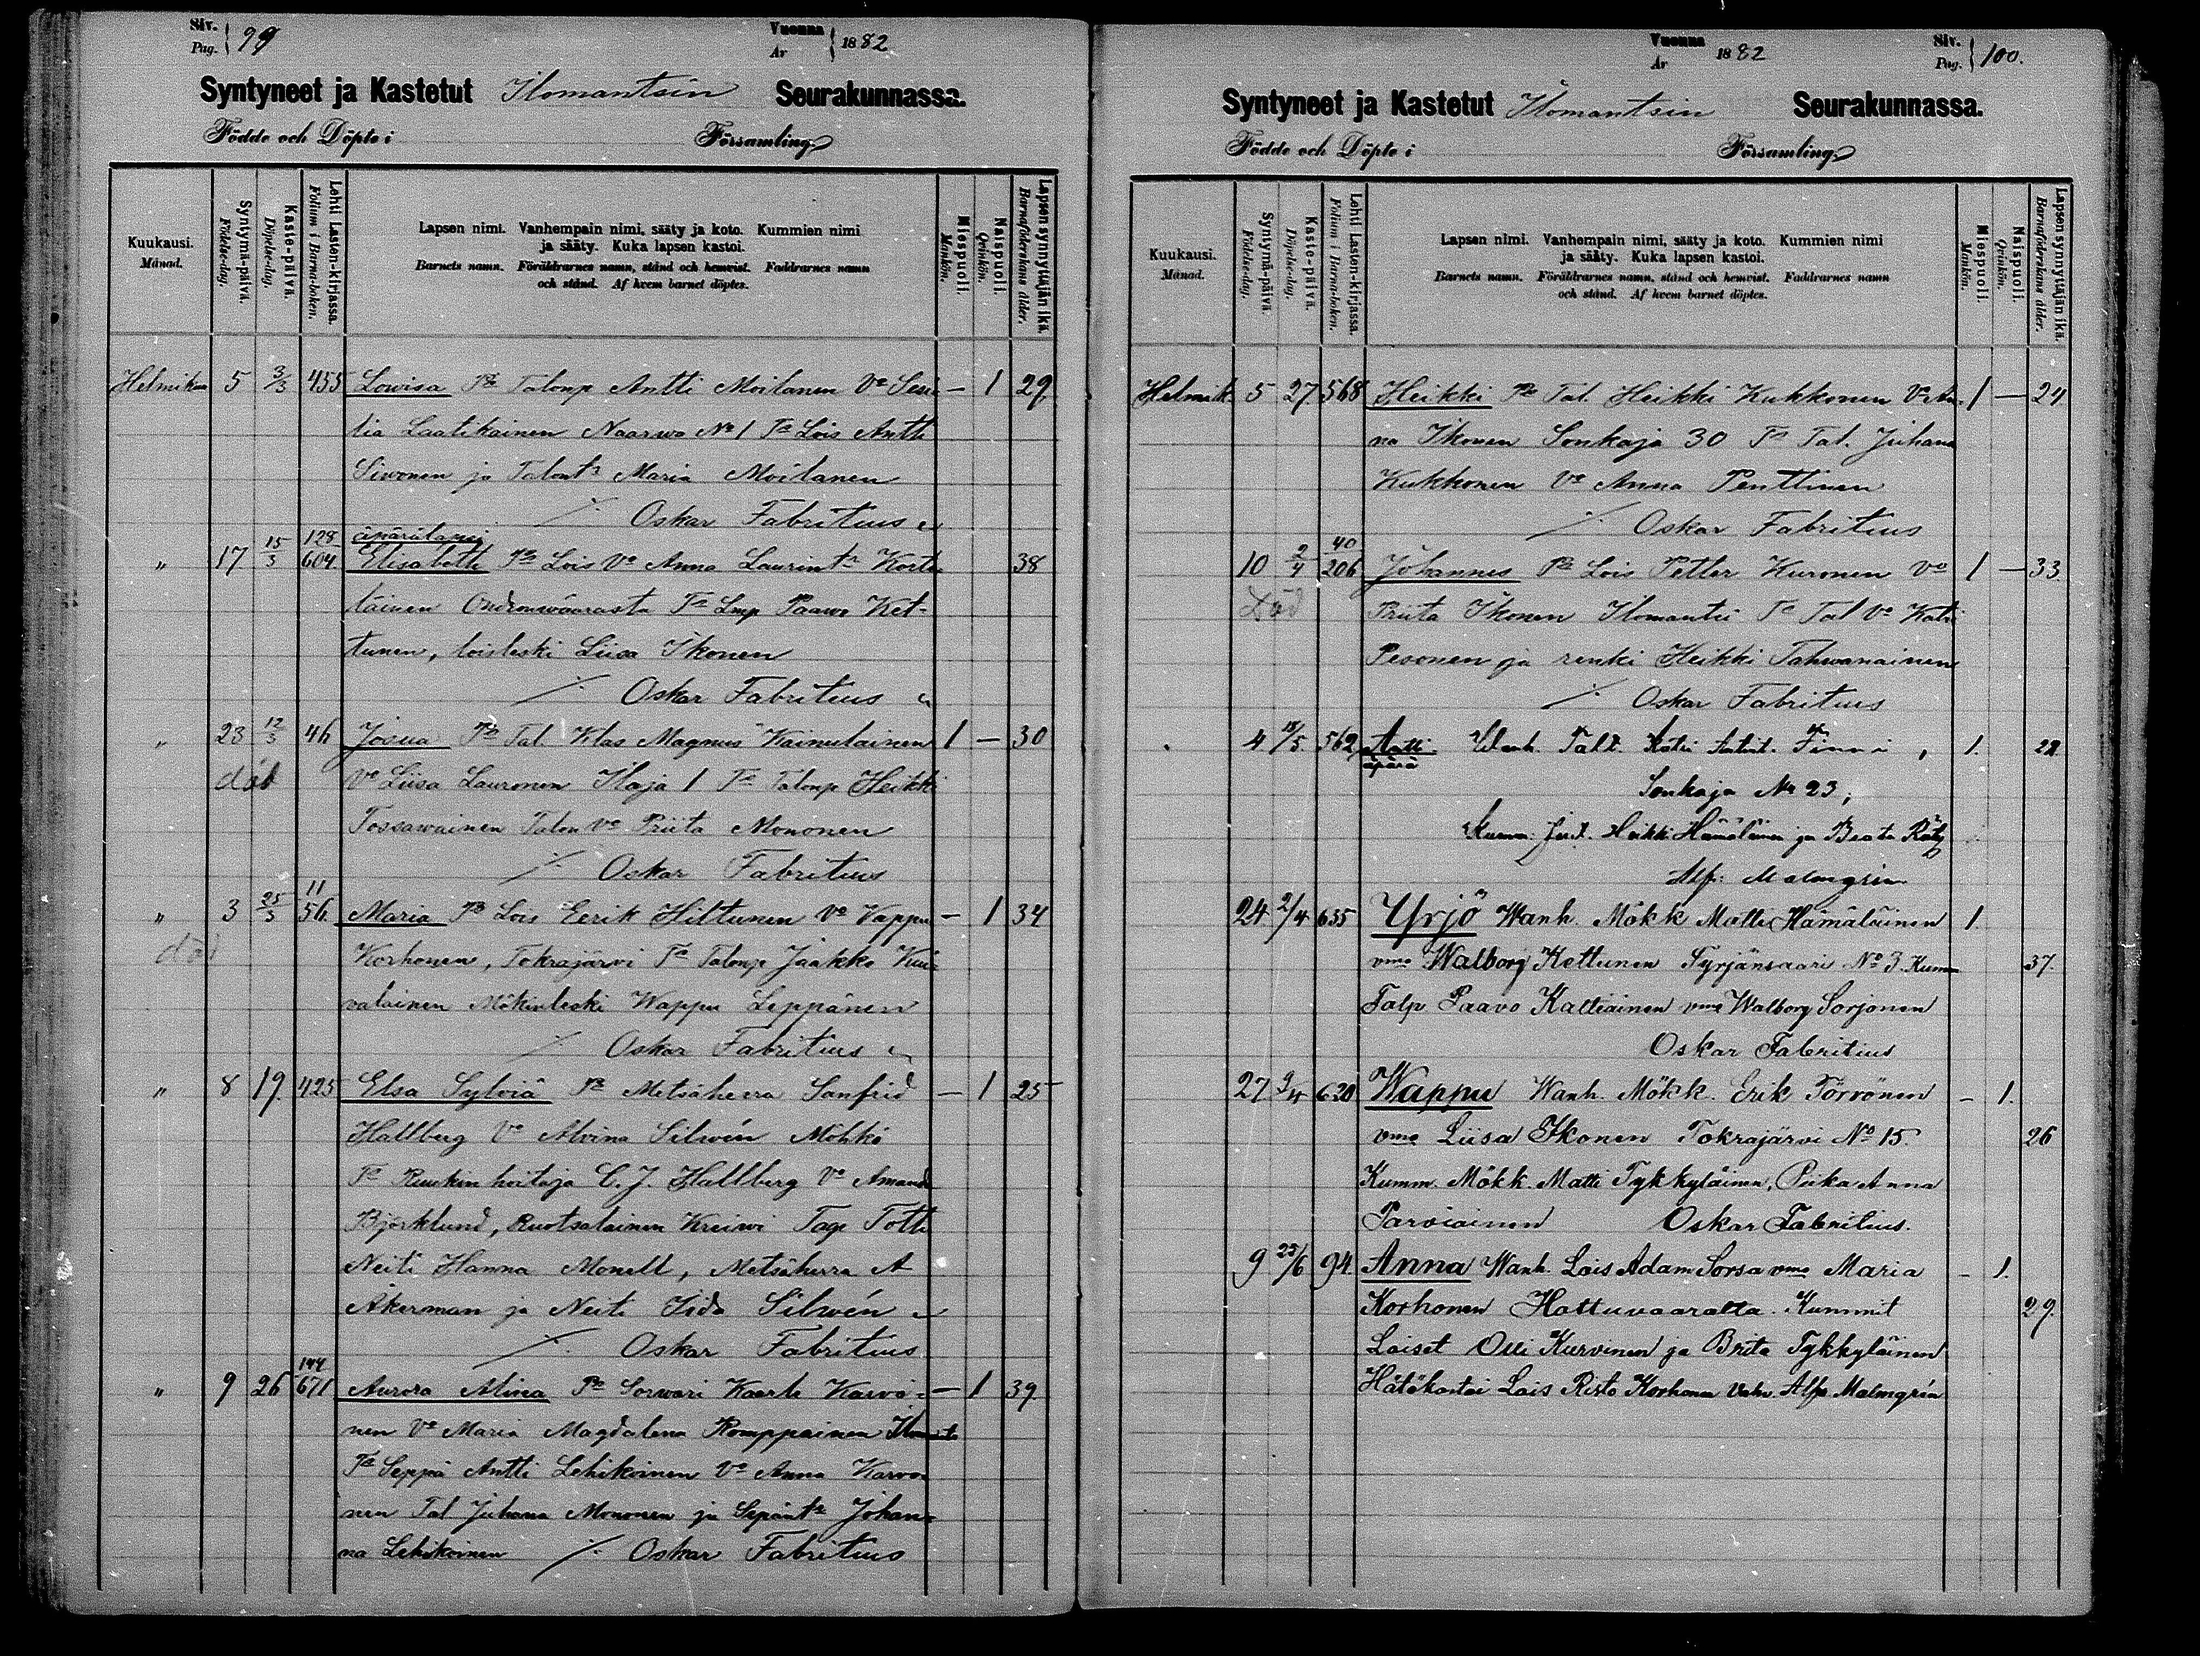 Siv.
Pag. 99
Vuonna
År 1882
Syntyneet ja Kastetut Ilomantsin Seurakunnassa.
Födde och Döpte i Församling
Kuukausi.
Månad.
Syntymä-päivä.
Födelse-dag.
Kaste-päivä.
Döpelse-dag.
Lehti Lasten-kirjassa.
Folium i Barna-boken.
Lapsen nimi. Vanhempain nimi, sääty ja koto. Kummien nimi
ja sääty. Kuka lapsen kastoi.
Barnets namn. Föräldrarnes namn, stånd och hemvist. Faddrarnes namn
och stånd. Af hvem barnet döptes.
Miespuoli.
Mankön.
Naispuoli.
Qvinkön.
Lapsensynnyttäjän ikä.
Barnaföderskans ålder.
Helmikuu 5 3/3 455 Lowisa Talonp Antti Moilanen Vo — 1 29.
Laatikainen Naarwa No 1 Lois Antti
Siwonen ja Talont Maria Moilanen
Oskar Fabritius
äpärälapsi
" 17 15/3 128/604 Elisabetti Lois Vo Anna Laurint Korte 38
läinen Paawo Ket-
tunen, loisleski Liisa Ikonen
Oskar Fabritius
" 23 12/3 46 Josua Tal. Klas Magnus Kainulainen 1 — 30
död Vo Liisa Lauronen Ilaja 1 Talonp Heikki
Tossawainen Talon Vo Priita Mononen
Oskar Fabritius
" 3 25/3 11/56 Maria Lois Eerik Hiltunen Vo Vappu — 1 34
död Korhonen, Tokrajärvi Talonp Jaakko Kui-
valainen Mökinleski Wappu Leppänen
Oskar Fabritius
" 8 19. 425 Elsa Sylviä Metsäherra Sanfrid — 1 25
Hallberg Vo Alvina Silwén Möhkö
Ruukin hoitaja C. J. Hallberg Vo Amanda
Björklund, Ruotsalainen Kreiwi Tage Totte
Neiti Hanna Monell, Metsäherra A
Åkerman ja Neiti Iida Silwén
Oskar Fabritius
" 9 26 144/671 Aurora Alina Sorwari Kaarle Karvo- — 1 39.
nen Vo Maria Magdalena Romppainen
Seppä Antti Lehikoinen Vo Anna Karvo-
nen Tal Juhana Mononen ja Sepänt Johan-
na Lehikoinen Oskar Fabritius
Vuonna
År 1882
Siv.
Pag. 100.
Syntyneet ja Kastetut Ilomantsin Seurakunnassa.
Födde och Döpte i Församling
Kuukausi.
Månad.
Syntymä-päivä.
Födelse-dag.
Kaste-päivä.
Döpelse-dag.
Lehti Lasten-kirjassa.
Folium i Barna-boken.
Lapsen nimi. Vanhempain nimi, sääty ja koto. Kummien nimi
ja sääty. Kuka lapsen kastoi.
Barnets namn. Föräldrarnes namn, stånd och hemvist. Faddrarnes namn
och stånd. Af hvem barnet döptes.
Miespuoli.
Mankön.
Naispuoli.
Qvinkön.
Lapsensynnyttäjän ikä.
Barnaföderskans ålder.
Helmik 5 27. 568 Heikki Tal. Heikki Kukkonen Vo An- 1 — 24.
na Ikonen Sonkaja 30 Tal. Juhana
Kukkonen Vo Anna Penttinen
Oskar Fabritius
10 2/4 40/206 Johannes Lois Petter Kuronen Vo 1 — 33.
Död Priita Ikonen Ilomantsi Tal Vo Katri
Pesonen ja renki Heikki Tahwanainen
Oskar Fabritius
4 562 Matti Wanh. Talt. Katri Finni 1.
äpärä
Sonkaja No 23,
Kumm. Heikki Hämäläinen ja Beata Räty
Alf. Malmgrén
24. 2/4 635 Yrjö Wanh. Mökk Matti Hämäläinen 1.
vmo Walborg Kettunen Syrjänsaari No 3. Kumm 37.
Talp Paavo Kaltiainen vmo Walborg Sorjonen
Oskar Fabritius
27 9/4 620 Wappu Wanh. Mökk. Erik Törvönen — 1.
vmo Liisa Ikonen Tokrajärvi No 15. 26
Kumm. Mökk. Matti Tykkyläinen, Piika Anna
Parviainen Oskar Fabritius.
9 25/6 94. Anna Wanh. Lois Adam Sorsa vmo Maria — 1.
Korhonen Hattuvaaralta. Kummit 29.
Loiset Olli Kurvinen ja Brita Tykkyläinen
Hätäkastoi Lois Risto Korhonen Vahv. Alf. Malmgrén